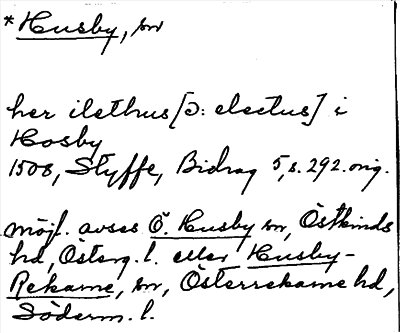 *Husby, sn
her ilethus [ɔ: electus] i
Hosby
1508, Styffe, Bidrag 5, s. 292. orig.
möjl. avses Ö. Husby sn, Östkinds
hd, Österg. l. eller Husby-
Rekarne, sn, Österrekarne hd,
Söderm. l.